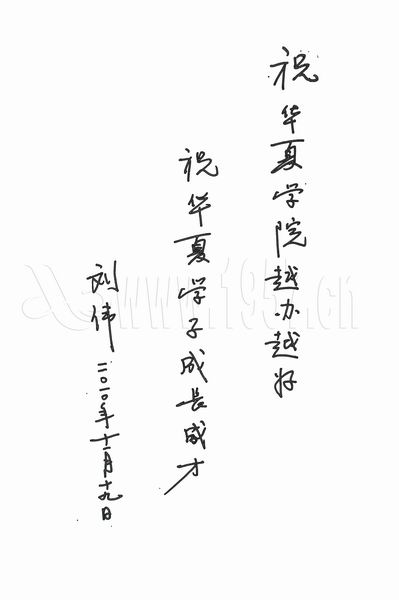 祝华夏学院越办越好
祝华夏学子成长成才
刘伟
二〇一〇年十一月十九日